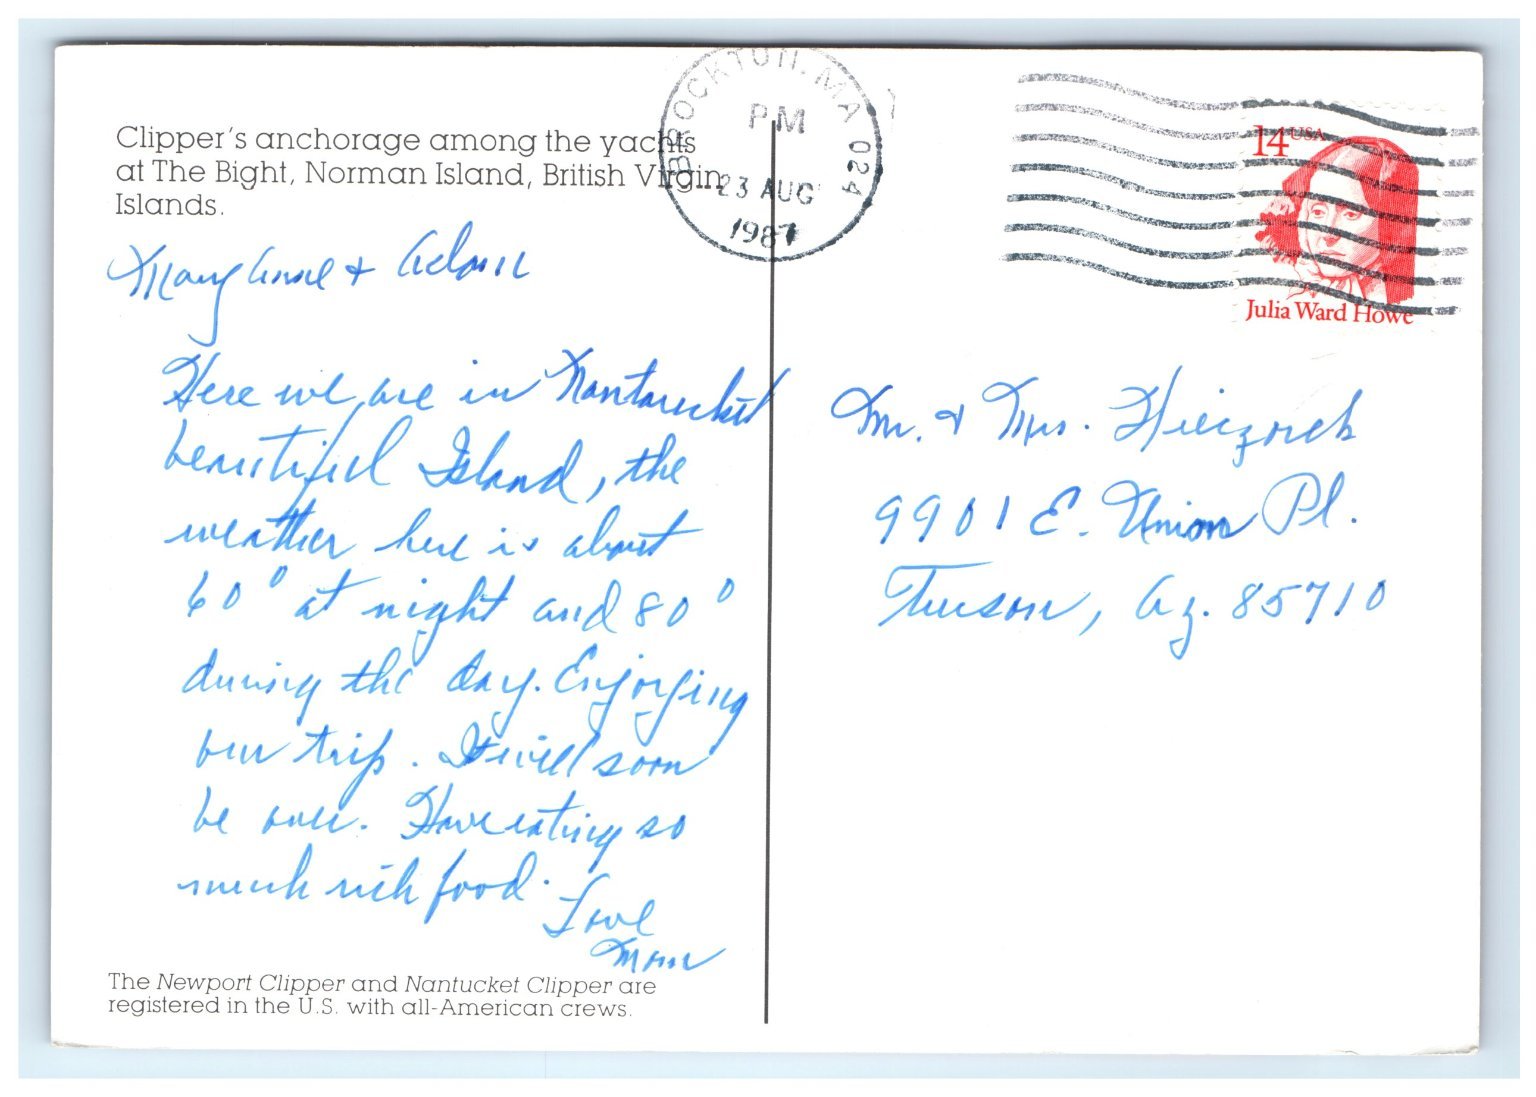 Clipper's anchorage among the yachts
at The Bight, Norman Island, British Virgin
Islands.
BROCKTON, MA 024
PM
23 AUG
1987
14 USA
Julia Ward Howe
Mary Anne + Adam
Here we are in Nantucket
beautiful Island, the
weather here is about
60° at night and 80°
during the day. Enjoying
our trip. It will soon
be over. Have eating so
much rich food.
Love
Mom
The Newport Clipper and Nantucket Clipper are
registered in the U.S. with all-American crews.
Mr. & Mrs.
9901 E. Union Pl.
Tucson, Az. 85710